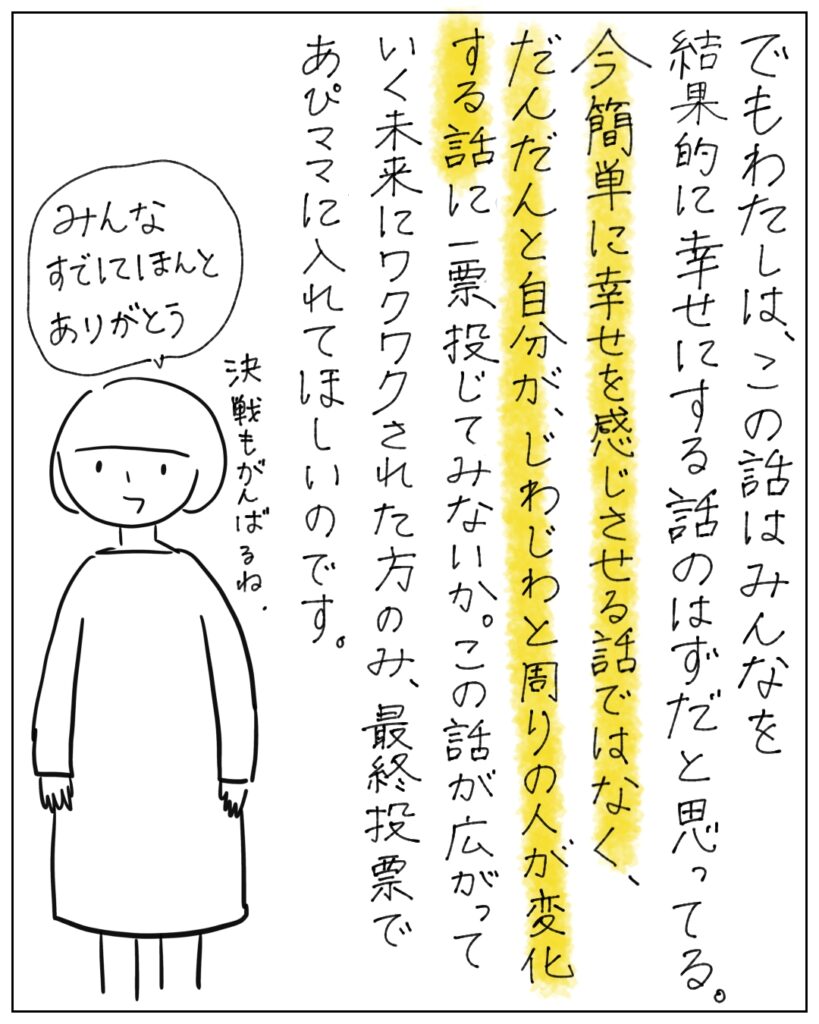 でもわたしは、この話はみんなを
結果的に幸せにする話のはずだと思ってる。
今簡単に幸せを感じさせる話ではなく、
だんだんと自分が、じわじわと周りの人が変化
する話に一票投じてみないか。この話が広がって
いく未来にワクワクされた方のみ、最終投票で
あぴママに入れてほしいのです。
みんな
すでにほんと
ありがとう
決戦もがんばるね.